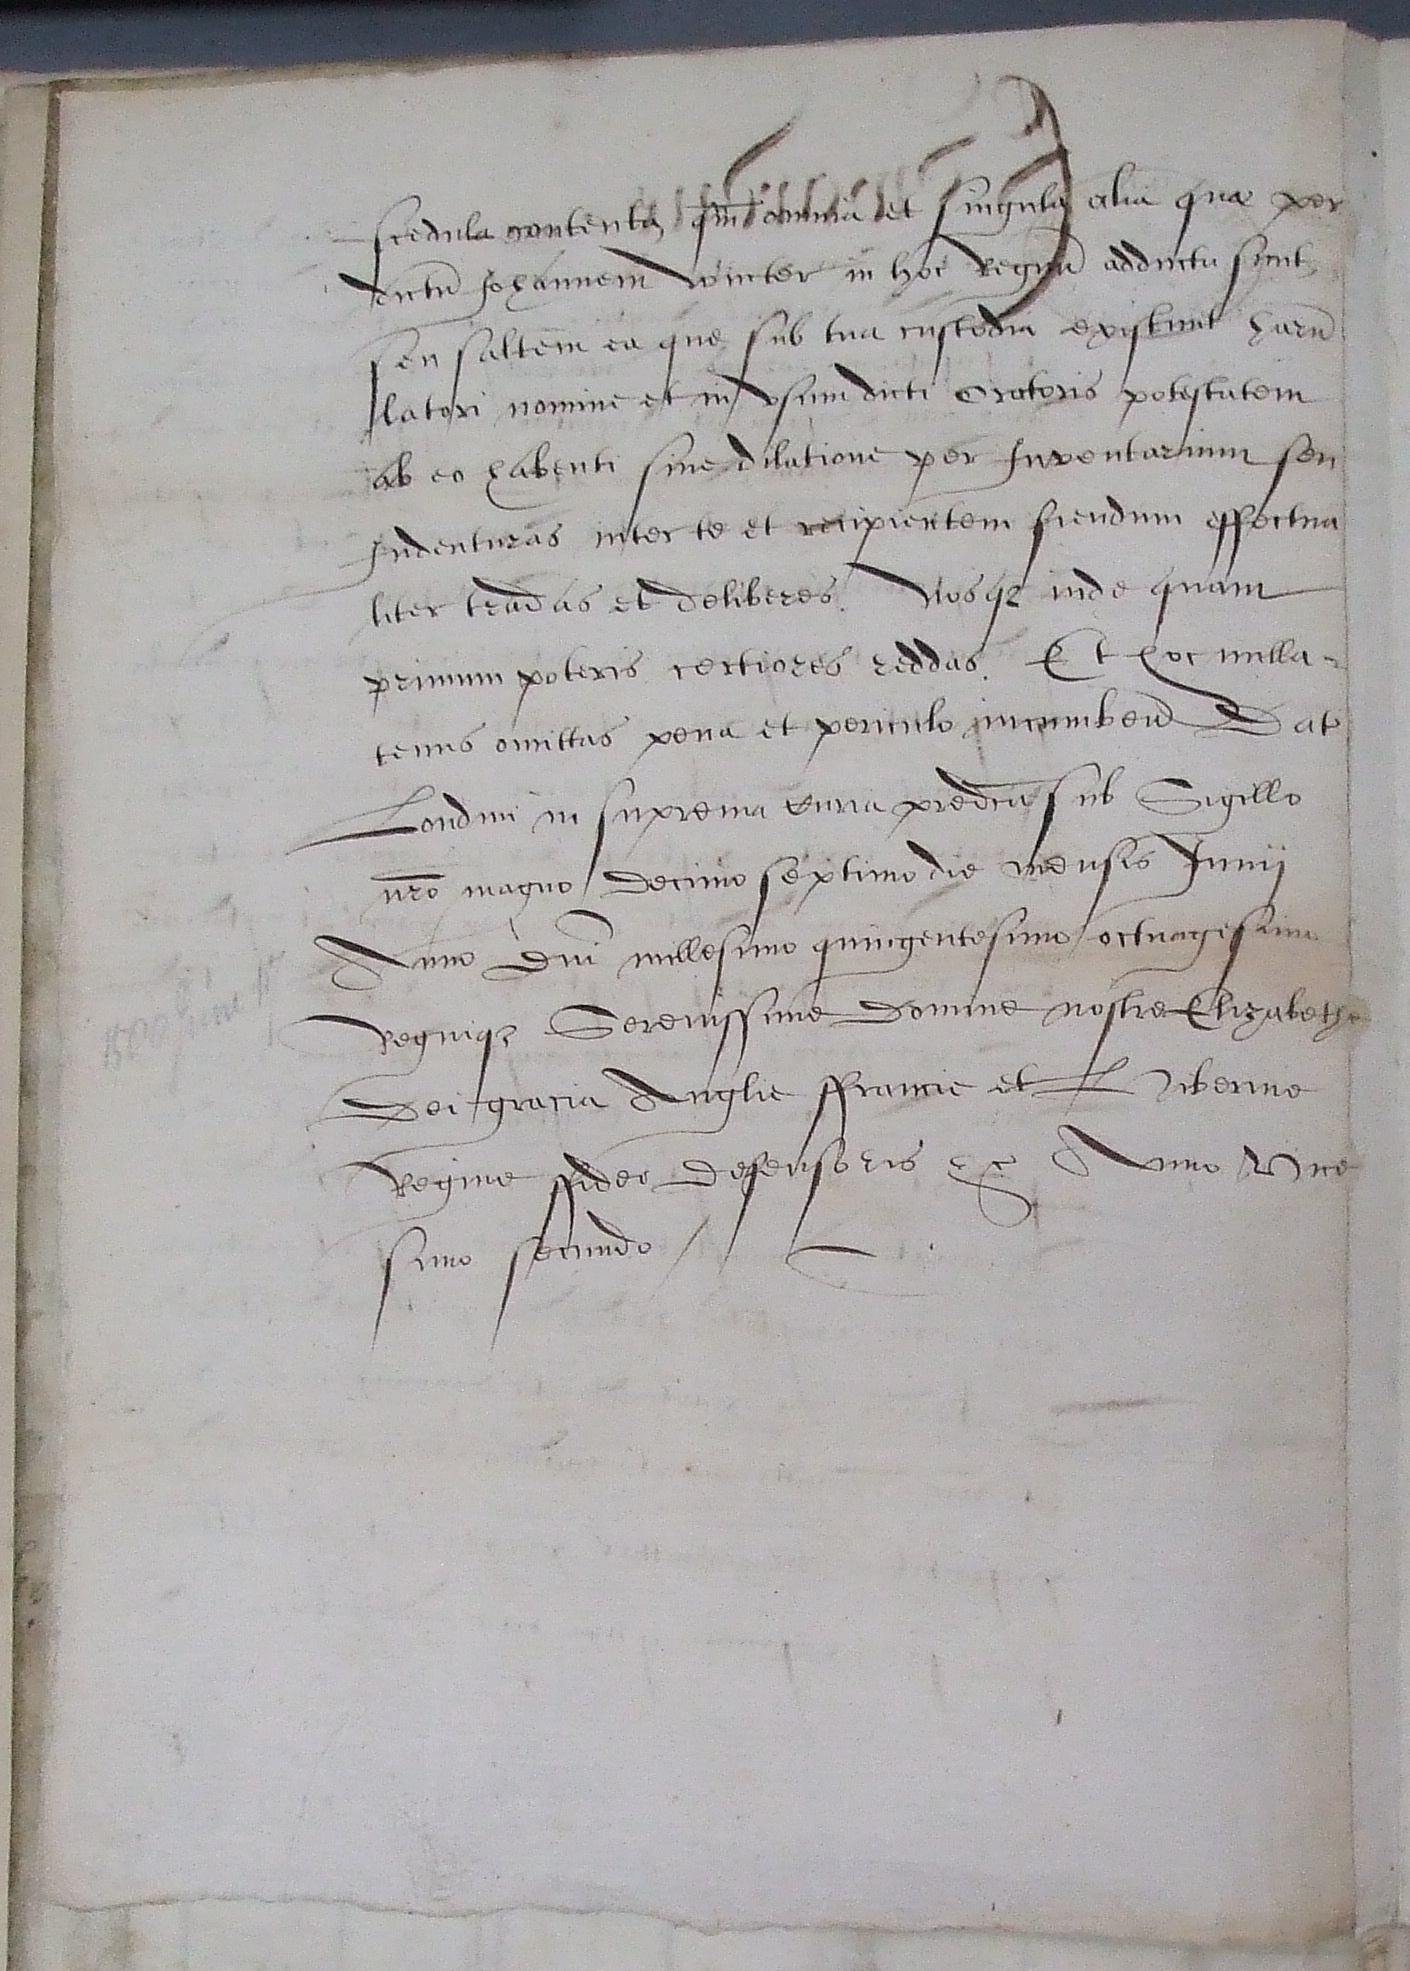 scedula contenta, qm̄ omnia et singula alia quæ per
dictū Johannem Winter in hoc Regnū adducta sunt,
seu saltem ea que sub tua custodia existunt harū
latori nomine et in vsum dicti Oratoris potestatem
ab eo habenti sine dilatione per Inventarium seu
Indenturas inter te et recipientem fiendum effectua
liter tradas et deliberes. Nosqȝ inde quam
primum poteris certiores reddas. Et hoc nulla-
tenus omittas pena et periculo incumbend Dat
Londini in suprema Curia predicta sub Sigillo
nr̄o magno decimo septimo die mensis Junij
Anno Dni millesimo quingentesimo octuagesimo
Regniqȝ Serenissime Domine nostre Elizabethe
Dei gracia Anglie ffrancie et Hibernie
Regine ffidei defensoris &c Anno Vice
simo secundo /